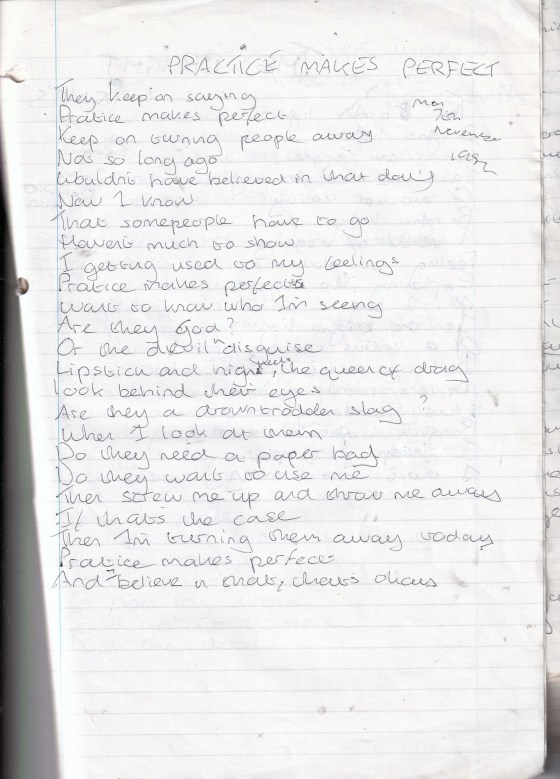 PRACTICE MAKES PERFECT
They keep on saying
Pratice makes perfect
Mon
7th
November
Keep on turning people away
Not so long ago
Wouldn't have believed in that day
Now I know
That somepeople have to go
Haven't much to show
I getting used to my feelings
Pratice makes perfect
Want to know who I'm seeing
Are they God?
Or the devil in disguise
Lipstick and high heels, the queer of drag
Look behind their eyes
Are they a downtrodden slag?
When I look at them
Do they need a paper bag
Do they want to use me
Then screw me up and throw me away
If that's the case
Then I'm turning them away today
Pratice makes perfect
And I believe in that, thats okay